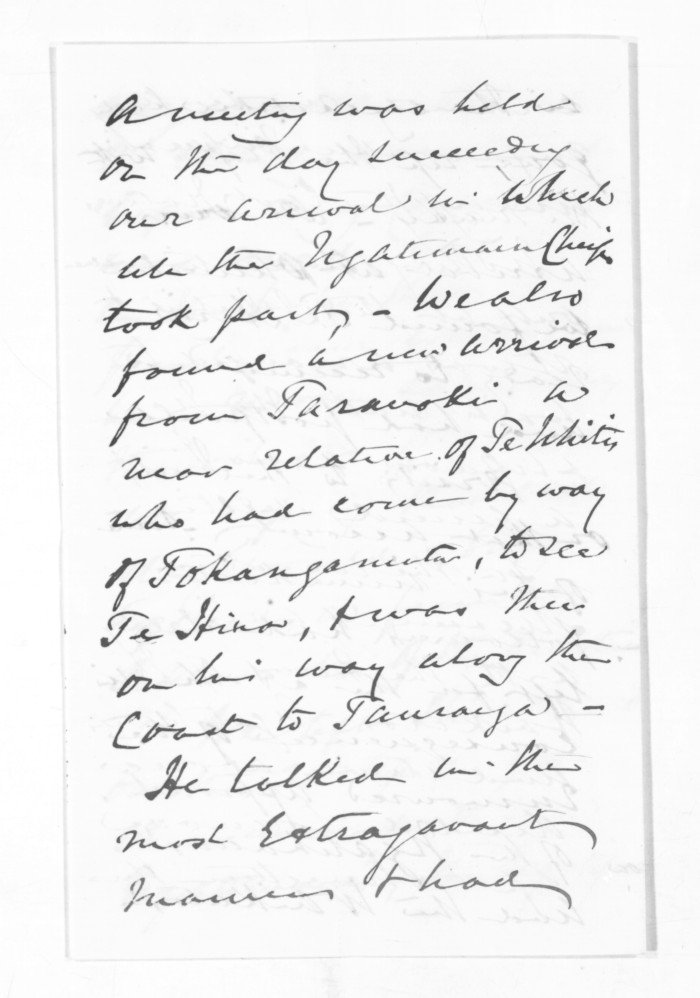 A meeting was held
on the day succeeding
our arrival in which
all the Ngatimaru Cheifs
took part, - We also
found a new arrival
from Taranaki a
near relative of Te Whitis
who had come by way
of Tokangamutu, to see
Te Hira, & was then
on his way along the
Coast to Tauranga -
He talked in the
most Extragavant
manner & had